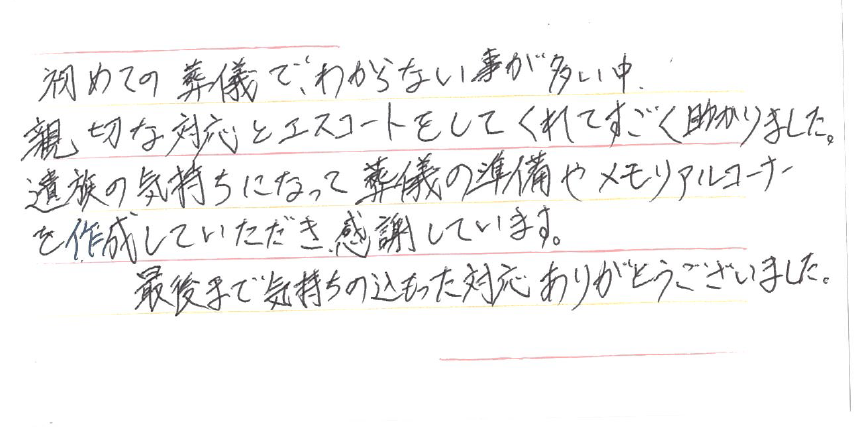 初めての葬儀で、わからない事が多い中、
親切な対応とエスコートをしてくれてすごく助かりました。
遺族の気持ちになって葬儀の準備やメモリアルコーナー
を作成していただき感謝しています。
最後まで気持ちの込もった対応ありがとうございました。